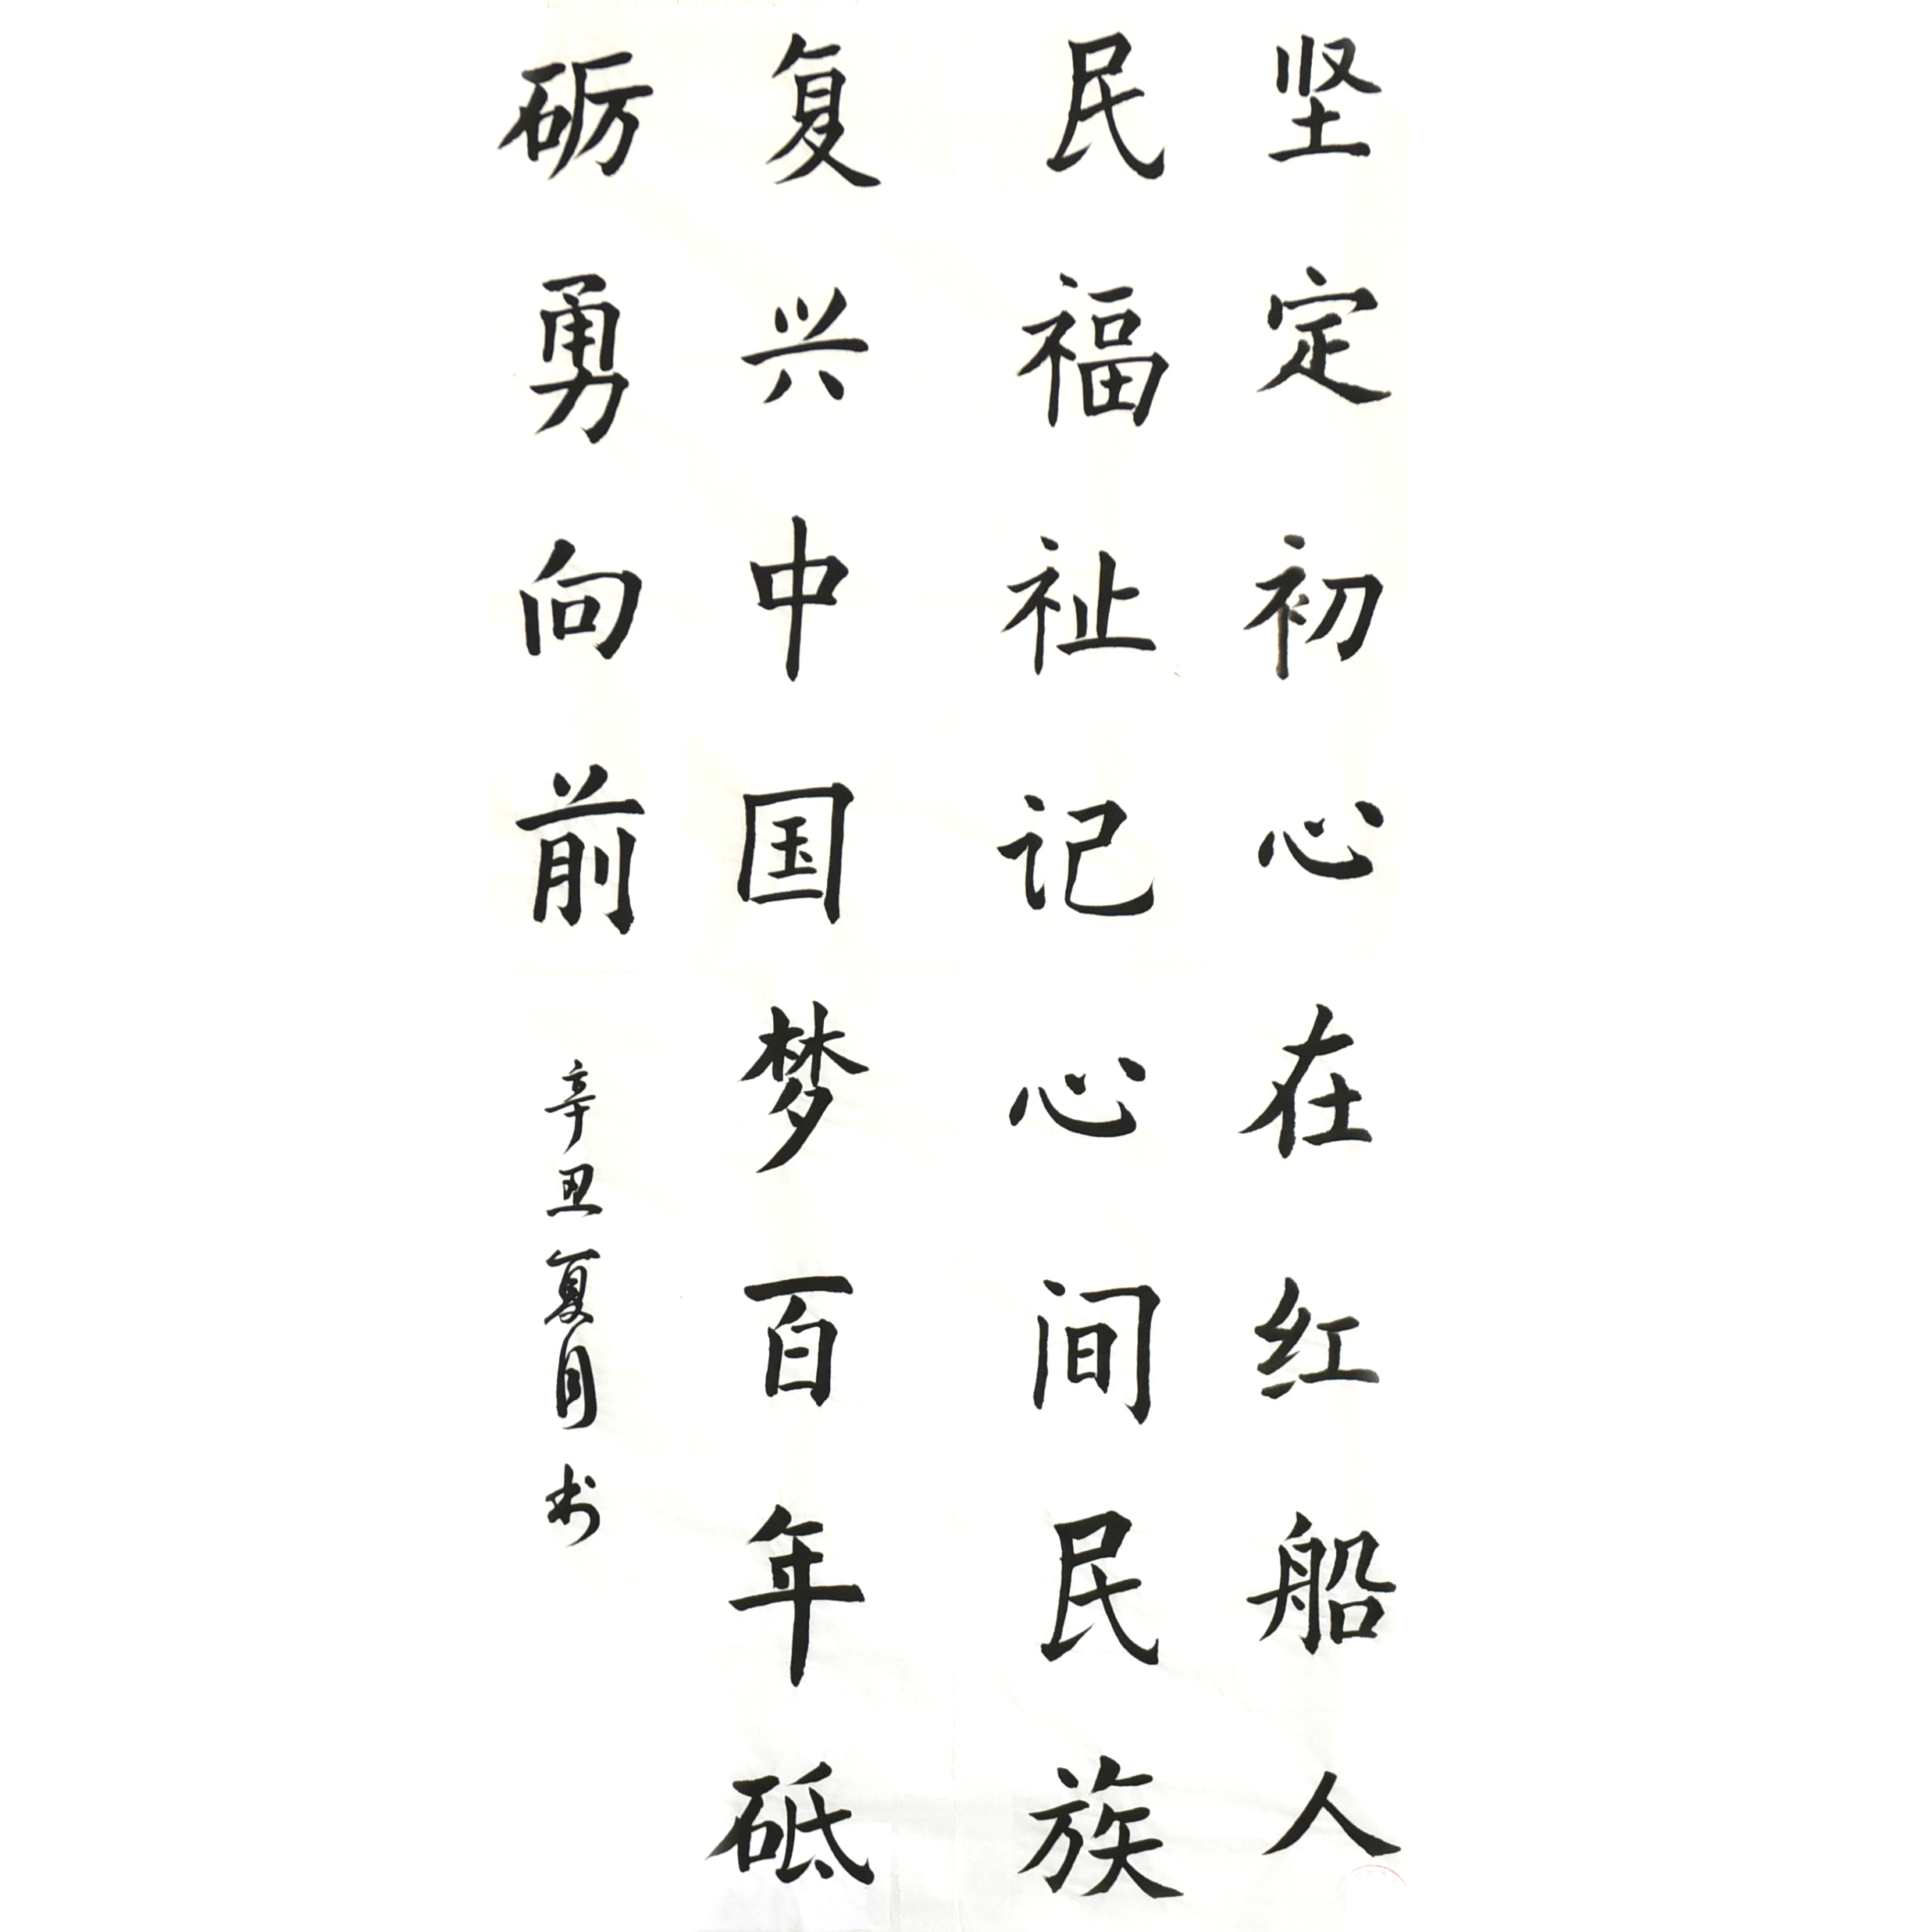 坚定初心在红船人
民福祉记心间民族
复兴中国梦百年砥
砺勇向前
辛丑夏月书